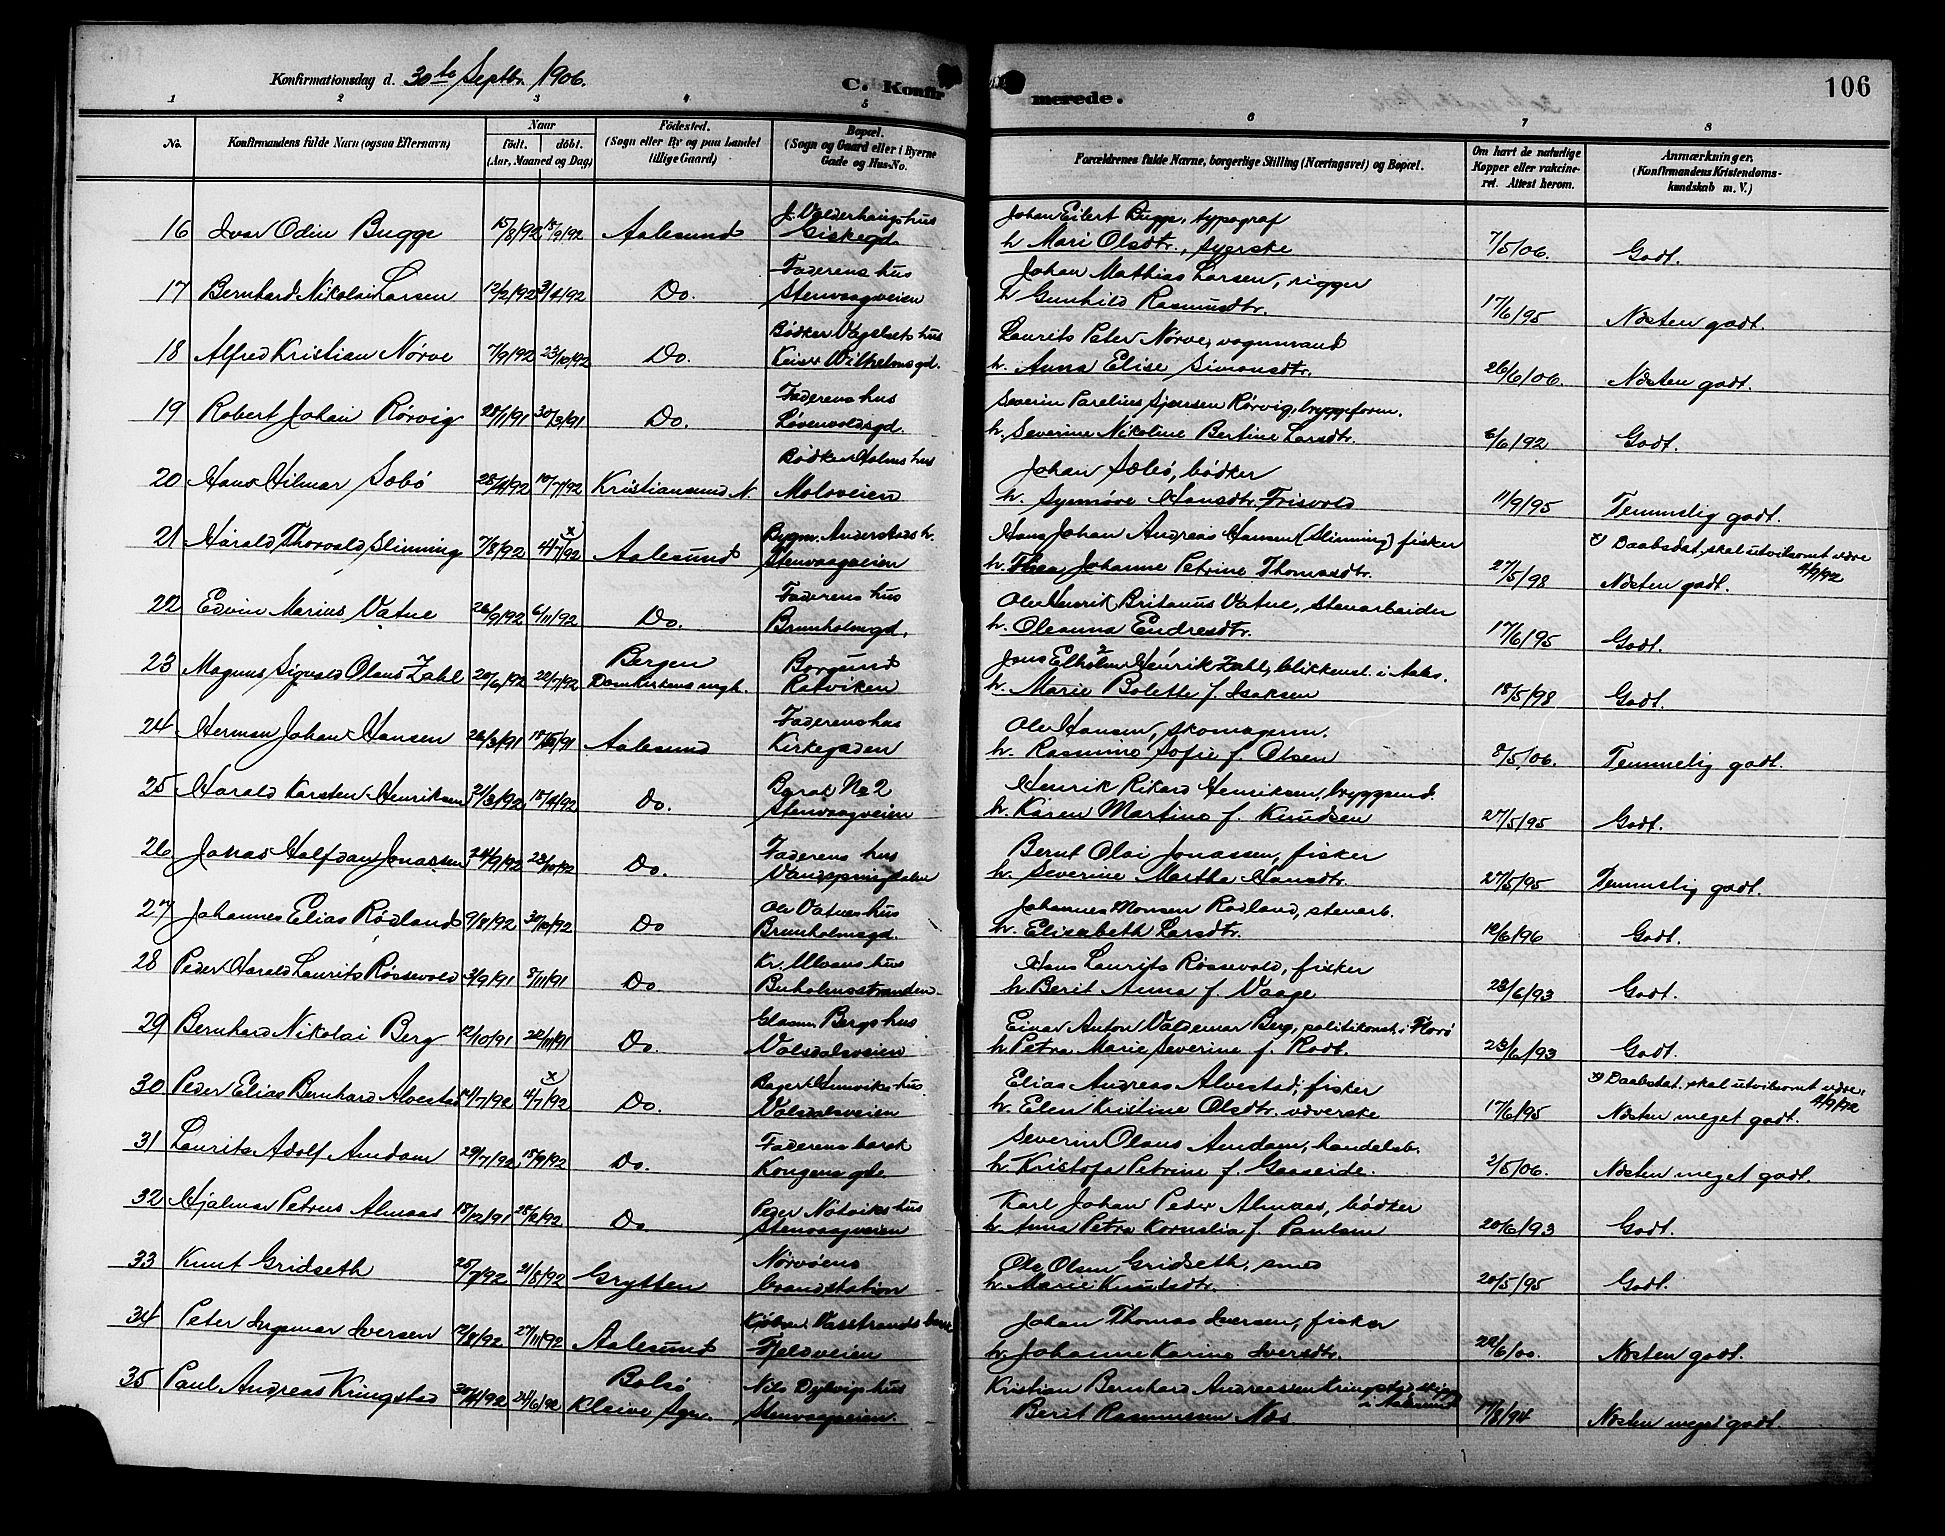 Konfirmationsdag d. 30te Septbr. 1906.
C. Konfirmerede.
106
1 2 3 4 5 6 7 8
No.
Konfirmandens fulde Navn (ogsaa Efternavn)
Naar
født. døbt.
(Aar, Maaned og Dag)
Fødested.
(Sogn eller By og paa Landet
tillige Gaard)
Bopæl.
(Sogn og Gaard eller i Byerne
Gade og Hus-No.
Forældrenes fulde Navne, borgerlige Stilling (Næringsvei) og Bopæl.
Om havt de naturlige
Kopper eller vaccine-
ret. Attest herom.
Anmærkninger.
(Konfirmandens Kristendoms-
kundskab m. V.)
J. Valderhaugs hus Johan Eilert Bugge, typograf
16 Ivar Odin Bugge 15/8/92 18/9/92 Aalesund Giskegd. h. Mari Olsdtr., sygerske 7/5/06. Godt.
Faderens hus Johan Mathias Larsen, rigger
17 Bernhard Nikolai Larsen 12/2/92 3/4/92 Do. Stenvaagveien h Gunhild Rasmusdtr. 17/6/95 Næsten godt.
Bødker Vagslets hus Laurits Peter Nørve, vognmand
18 Alfred Kristian Nørve 7/9/92 23/10/92 Do. Keiser Wilhelmsgd. h. Anna Elise Simonsdtr. 26/6/06. Næsten godt.
Faderens hus Severin Parelius Sjursen Rørvig, bryggeform.
19 Robert Johan Rørvig 28/1/91 30/3/91 Do. Løvenvoldsgd. h. Severine Nikoline Bertine Larsdtr. 6/6/92 Godt.
Bødker Holms hus Johan Sæbø, bødker
20 Hans Hilmar Sæbø 28/4/92 10/7/92 Kristiansund N. Moloveien h. Synnøve Hansdtr. Frisvold 11/9/95 Temmelig godt.
Bygm. Anderstads h. Hans Johan Andreas Hansen (Slinning) fisker x) Daabsdat. skal utvilsomt være
21 Harald Thorvald Slinning 7/8/92 4/7/92 x) Aalesund Stenvaagveien h. Thea Johanne Petrine Thomasdtr. 27/5/98 Næsten godt. 4/9/92
Faderens hus Ole Henrik Britanus Vatne, stenarbeider
22 Edvin Marius Vatne 26/9/92 6/11/92 Do. Brunholmgd. h. Oleanna Endresdtr. 17/6/95 Godt.
Bergen Borgund Jens Elholm Henrik Zahl, blikkensl. i Aales.
23 Magnus Sigvald Olaus Zahl 20/6/92 22/7/92 Domkirkens mgh. Ratviken h. Marie Bolette f. Isaksen 18/5/98 Godt.
Faderens hus Ole Hansen, skomagerm.
24 Herman Johan Hansen 26/3/91 Aalesund Kirkegaden h. Rasmine Sofie f. Olsen 8/5/06. Temmelig godt.
Barak No 2 Henrik Rikard Henriksen, bryggemd.
25 Harald Karsten Henriksen 21/3/92 18/4/92 Do. Stenvaagveien h. Karen Martine f. Knudsen 27/5/95 Godt.
Faderens hus Bernt Olai Jonassen, fisker
26 Jonas Halfdan Jonassen 24/9/92 23/10/92 Do. h. Severine Marthe Hansdtr. 27/5/95 Temmelig godt.
Ole Vatnes hus Johannes Monsen Rødland, stenarb.
27 Johannes Elias Rødland 9/8/92 30/10/92 Do Brunholmsgd. h. Elisabeth Larsdtr. 12/6/96 Godt.
Kr. Moens hus Hans Laurits Røssevold, fisker
28 Peder Harald Laurits Røssevold 3/9/91 8/11/91 Do Buholmsstranden h. Berit Anna f. Vaage 23/6/93 Godt.
Glasm. Bergs hus Einar Anton Valdemar Berg, politikonst. i Florø
29 Bernhard Nikolai Berg 12/10/91 22/11/91 Do. Volsdalsveien h Petra Marie Severine f. Rødt. 23/6/93 Godt.
Elias Andreas Alvestad, fisker x) Daabsdat. skal utvilsomt være
30 Peder Elias Bernhard Alvestad 14/7/92 4/7/92 x) Do. Volsdalsveien h. Elen Kristine Olsdtr. væverske 17/6/95 Næsten meget godt. 4/9/92
Faderens barak Severin Olaus Amdam, handelsb.
31 Laurits Adolf Amdam 29/7/92 18/9/92 Do. Kongens gde. h. Kristofa Petrine f. Gaaseide. 2/5/06. Næsten meget godt.
Peder Nøtviks hus Karl Johan Peder Almaas, bødker
32 Hjalmar Petrus Almaas 18/12/91 28/2/92 Do Stenvaagveien h. Anna Petra Kornelia f. Paulsen 20/6/93 Godt.
Nørvøens Ole Olsen Gridseth, smed
33 Knut Gridseth 25/7/92 21/8/92 Grytten brandstation h. Marie Knutsdtr. 20/5/95 Godt.
Kjøbm. Vasstrands hus Johan Thomas Iversen, fisker
34 Peter Ingemar Iversen 12/8/92 27/11/92 Aalesund Fjeldveien h. Johanne Karine Iversdtr. 22/6/00. Næsten godt.
Bolsø Nils Dylvigs hus Kristian Bernhard Andreassen Kringstad, rigger
35 Paul Andreas Kringstad 30/4/92 24/6/92 Kleive Sgn. Stenvaagveien. Berit Rasmussen Næs i Aalesund 17/8/94 Næsten meget godt.